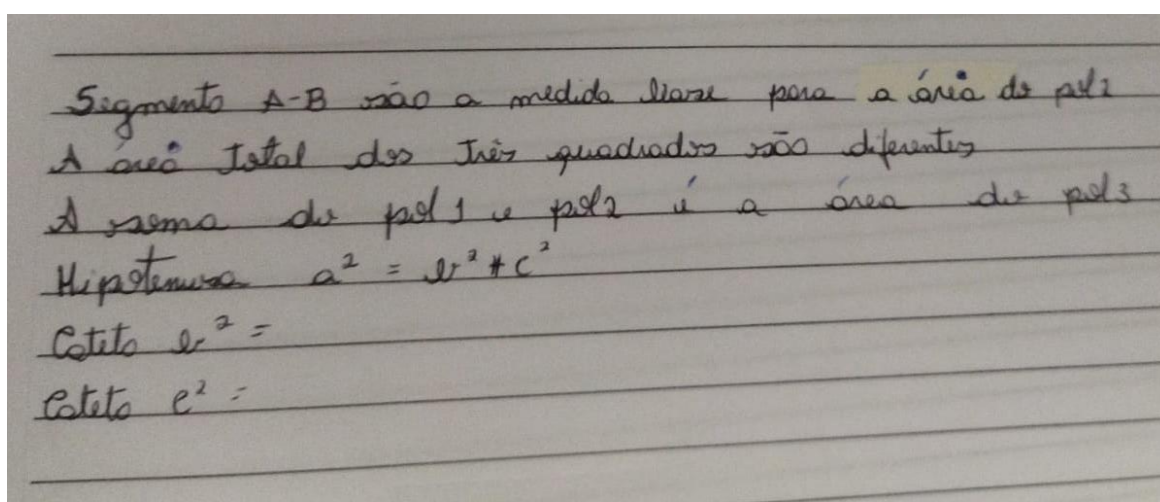 Segmento A-B são a medida base para a área do pol2
A área Total dos Três quadrados são diferentes
A soma do pol1 e pol2 é a área do pol3
Hipotenusa a² = b² + c²
Cateto b² =
Cateto c² =